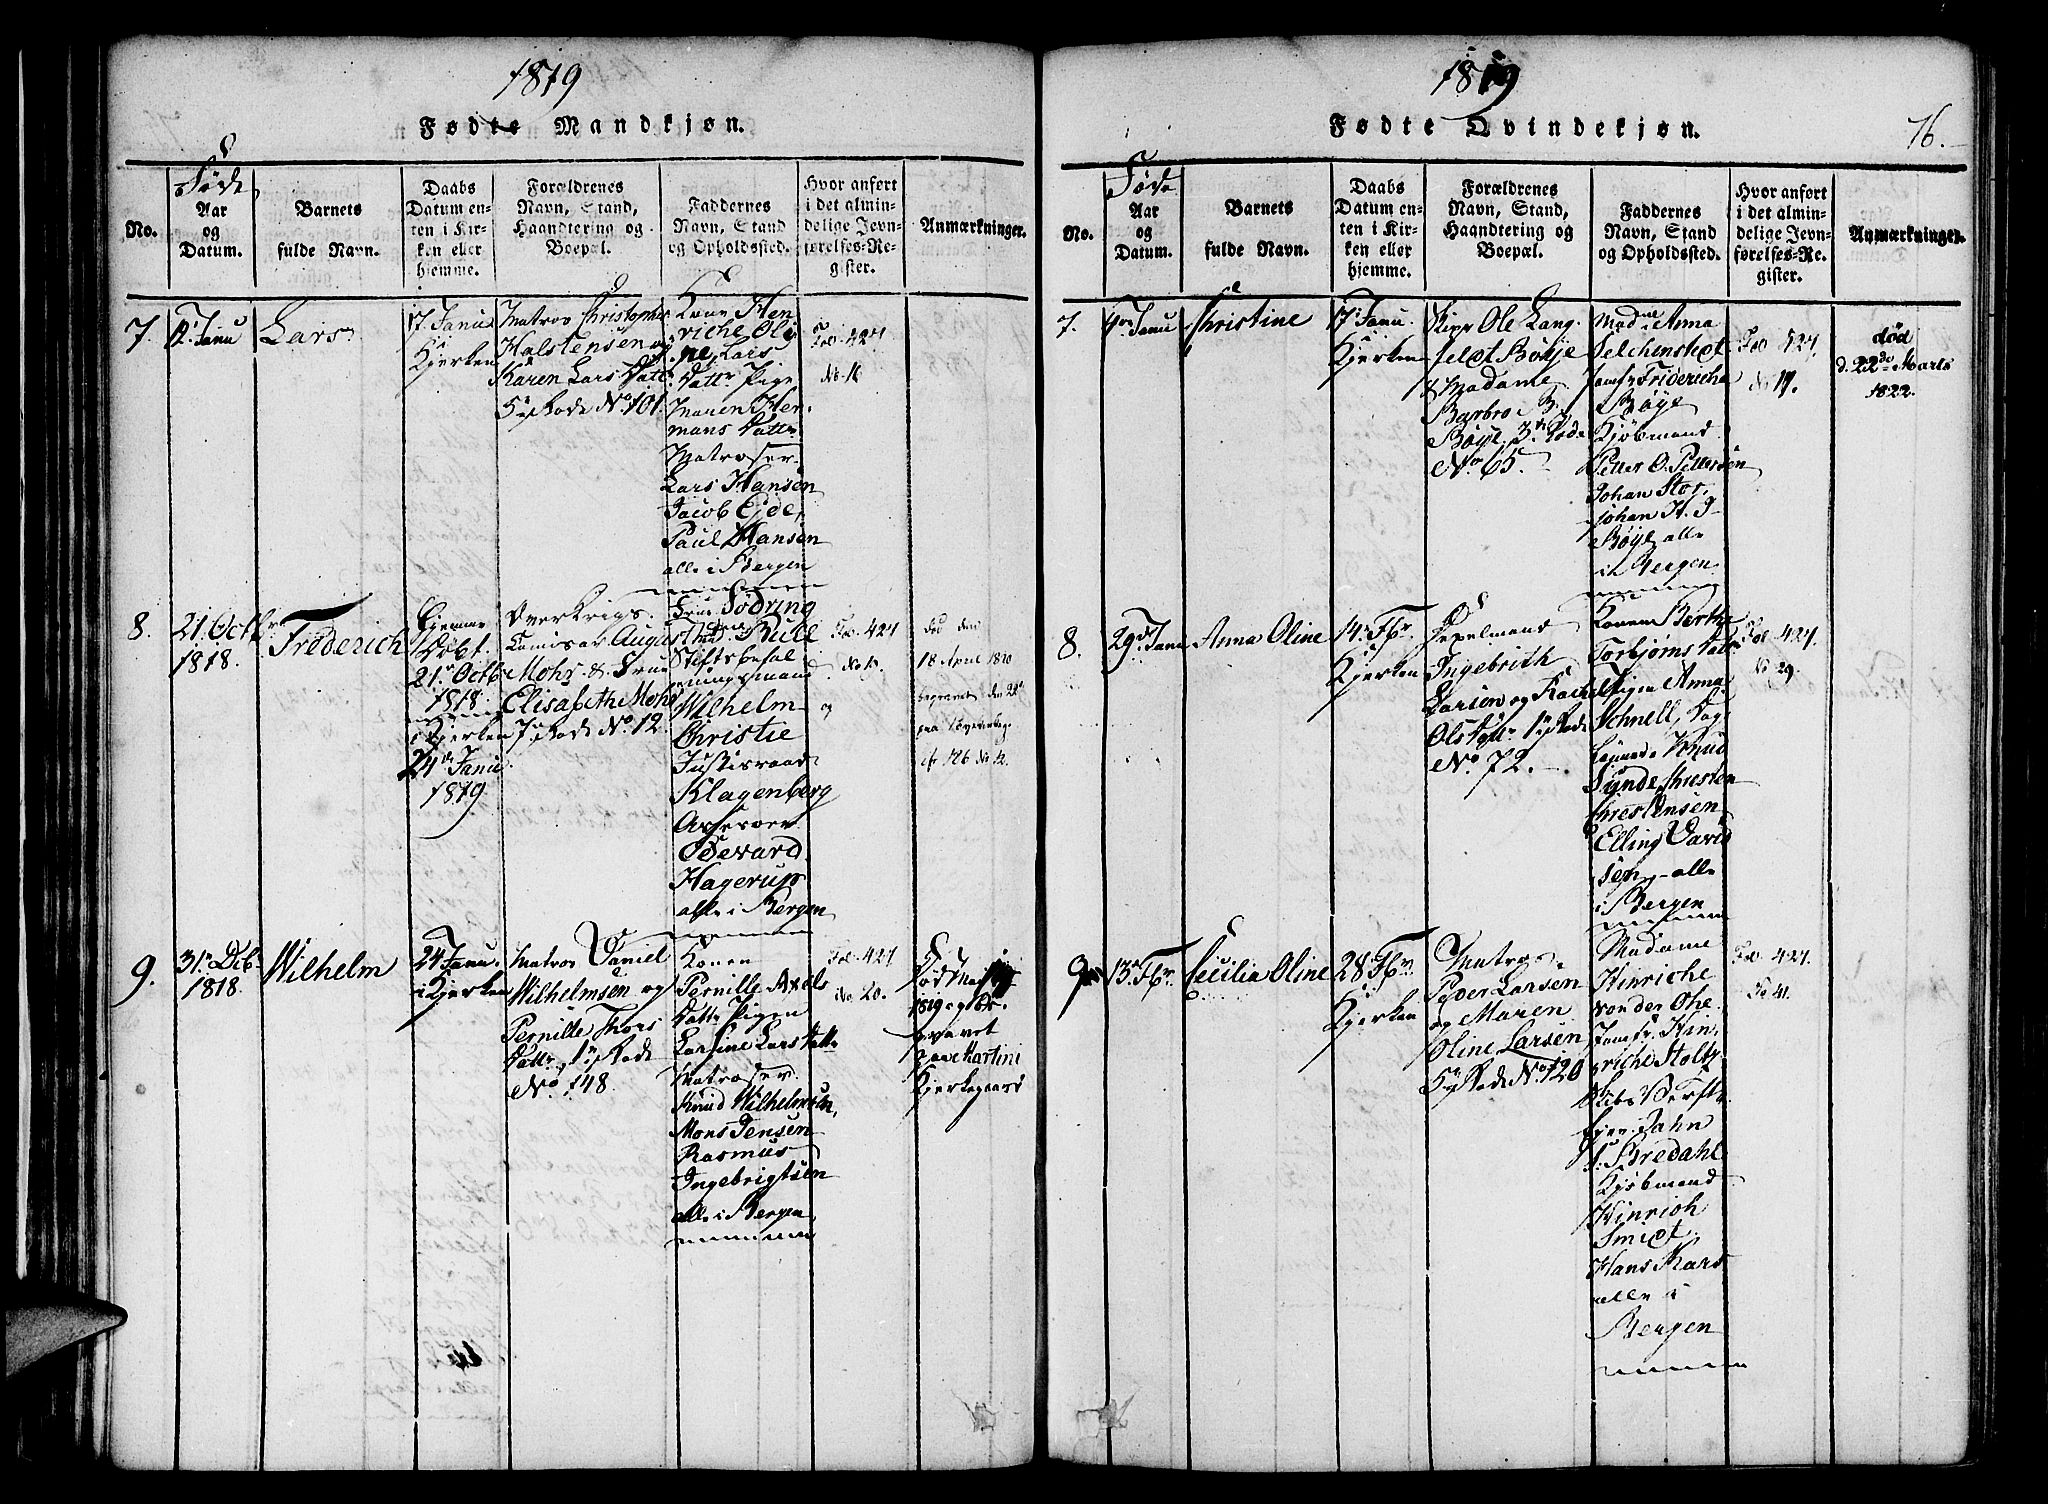 1819
Fødte Mandkjøn.
No.
Føde
Aar
og
Datum.
Barnets
fulde Navn.
Daabs
Datum en-
ten i Kir-
ken eller
hjemme.
Forældrenes
Navn, Stand,
Haandtering og
Boepæl.
Faddernes
Navn, Stand
og Opholdssted.
Hvor anført
i det almin-
delige Jevn-
førelses-Re-
gister.
Anmærkninger.
7.
Janu
Lars
17 Janu
i
Kjerken
Matros Christopher
Halstensen og
Karen Lars Datt
5 Rode No. 101.
Kone Hen
riche Ol
Lars
Datt Pige
Maren Her
mans Datt
Matroser
Lars Hansen
Jacob Eide,
Paul Hansen
alle i Bergen
Fol. 427
No. 16
8.
21 Octbr
1818.
Frederich
Hjemme
Døbt
21 Octb
1818
i Kjerken
24 Janu
1819
Overkrigs
Comisær August
Mohr & Frue
Elisabethe Mohr
7 Rode No. 12.
Frue Sødring
Bull
Stiftsbefal
ingsmand
Wilhelm
Christie
Justisraad
Klagenberg
Assessor
Edevard
Hagerup
alle i Bergen
Fol. 427
No. 19.
Død den
18 April 1820
begravet den 22
paa
No 12.
9.
31 Dcb
1818.
Wilhelm
24 Janu.
i Kjerken
Matros Daniel
Wilhelmsen og
Pernille Thors
Datt, 1 Rode
No. 148.
Konen
Pernille Axels
Datt Pigen
Larsine Lars Datt
Matroser
Knud Wilhelmsen,
Mons Jensen
Rasmus
Ingebrigtsen
alle i Bergen
Fol. 427
No. 20.
Død
1819 og
gravet
paa Martini
Kjerkegaard
1819
76.
Fødte Qvindekjøn.
No.
Føde
Aar
og
Datum.
Barnets
fulde Navn.
Daabs
Datum en-
ten i Kir-
ken eller
hjemme.
Forældrenes
Navn, Stand,
Haandtering og
Boepæl.
Faddernes
Navn, Stand
og Opholdssted.
Hvor anført
i det almin-
delige Jevn-
førelses-Re-
gister.
Anmærkninger.
7.
Janu
Christine
17 Janu.
Kjerken
Skipr Ole Lang
feldt Böije
& Madame
Barbro B.
Böije. 3 Rode
No. 65.
Madme Anna
Selchenstedt
Jomfr Fridericha
Böije
Kjöbmand
Petter O. Pettersen
Johan Stor,
Johan H. J
Böije alle
i Bergen
Fol. 427.
No 17.
død
d. 22de Marts
1822.
8.
29 Janu
Anna Oline
14 Fbr
i
Kjerken
Ingebrith
Larsen og Rachel
Ols Datt 1 Rode
No. 72.
Konen Berthe
Torbjørns Datt
Pigen Anna
Schnell, Dag
lønnede Knud
Sunde, Christen
Christensen
Elling David
sen, alle
i Bergen
Fol. 427.
No 29.
9
13 Fbr
Cecilia Oline
28 Fbr
i
Kjerken
Matros
Peder Larsen
og Maren
Oline Larsen,
5 Rode No. 120
Madame
Hinriche
von der Ohe,
Jomfr. Hin,
riche Stoltz
Jahn
Bredahl
Kjøbmand
Hinrich
Smidt,
Hans Kars
alle i
Bergen
Fol. 427.
No 41.